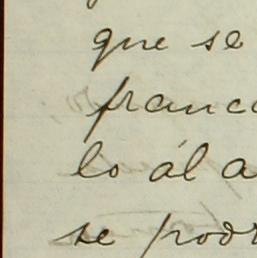 que se
franc
lo ál a
se podr